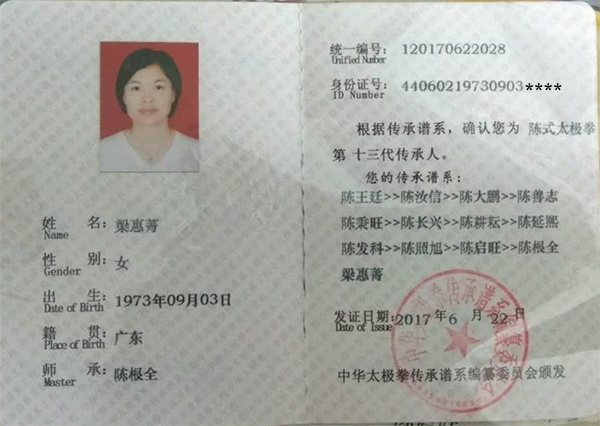 姓 名：梁惠菁
Name
性 别：女
Gender
出 生：1973年09月03日
Date of Birth
籍 贯：广东
Place of Birth
师 承：陈根全
Master
统一编号：120170622028
Unified Number
身份证号：44060219730903****
ID Number
根据传承谱系，确认您为 陈式太极拳
第 十三代传承人。
您的传承谱系：
陈王廷>>陈汝信>>陈大鹏>>陈善志
陈秉旺>>陈长兴>>陈耕耘>>陈延熙
陈发科>>陈照旭>>陈启旺>>陈根全
梁惠菁
发证日期：2017 年 6 月 22 日
Date of Issue
中华太极拳传承谱系编纂委员会颁发